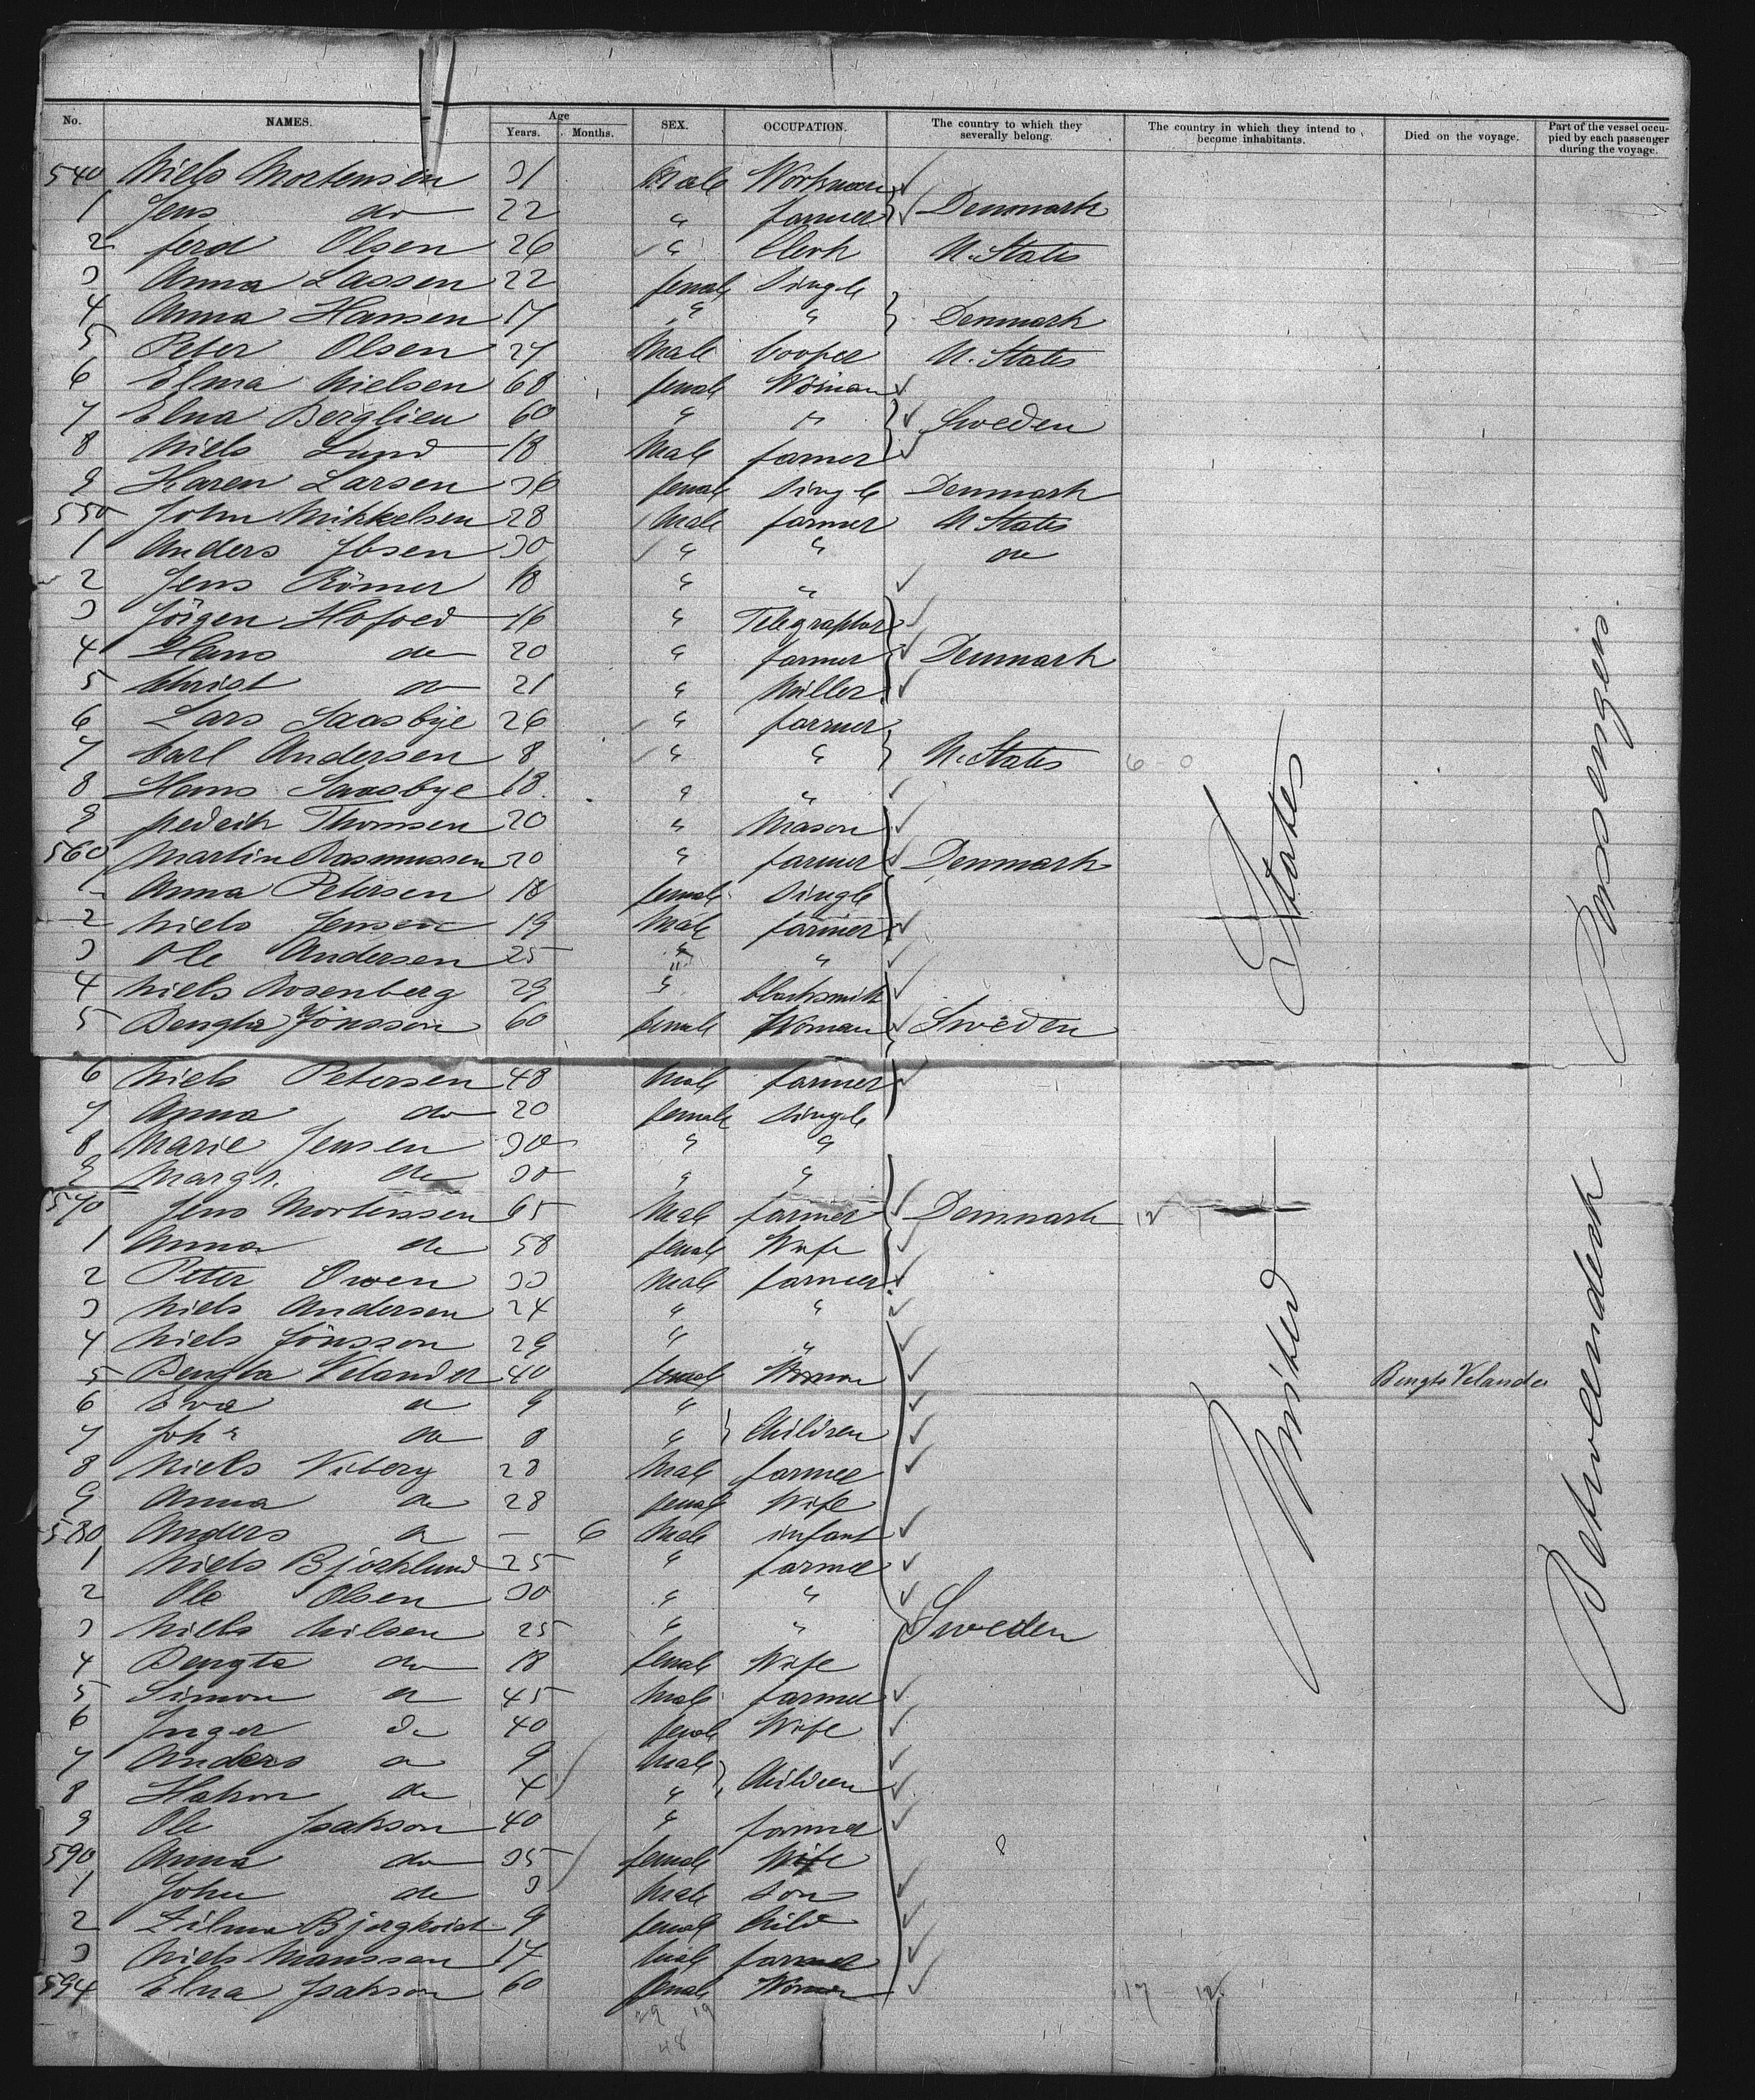 No. NAMES. Age Years. Months. SEX. OCCUPATION. The country to which they severally belong. The country in which they intend to become inhabitants. Died on the voyage. Part of the vessel occupied by each passenger during the voyage.
540 Niels Mortensen 31 Male Workman
1 Jens do 22 " farmer Denmark
2 ferd Olsen 26 " Clerk U. States
3 Anna Lassen 22 female Single
4 Anna Hansen 17 " " Denmark
5 Peter Olsen 27 Male Cooper U. States
6 Elma Nielsen 68 female Woman
7 Elna Berglien 60 " " Sweden
8 Niels Lund 18 Male farmer
9 Karen Larsen 36 female Single Denmark
550 John Mikkelsen 28 Male farmer U States
1 Anders Ibsen 30 " " do
2 Jens Römer 18 " "
3 Jörgen Hofoed 16 " Telegraphor
4 Hans do 20 " farmer Denmark
5 Christ do 21 " Miller
6 Lars Saasbye 26 " farmer
7 Carl Andersen 8 " " U. States 6 - 0
8 Hans Saasbye 18 " "
9 fredrik Thomsen 20 " Mason
560 Martin Rasmussen 20 " farmer Denmark
1 Anna Petersen 18 female Single
2 Niels Jensen 19 Male farmer
3 Ole Andersen 25 " "
4 Niels Rosenberg 29 " blacksmith
5 Bengta Jönsson 60 female Woman Sweden
6 Niels Petersen 48 Male farmer
7 Anna do 20 female Single
8 Marie Jensen 30 " "
9 Margr. do 30 " "
570 Jens Mortenssen 65 Male farmer Denmark 12
1 Anna do 58 female Wife
2 Peter Owen 33 Male farmer
3 Niels Andersen 24 " "
4 Niels Jönsson 29 " "
5 Bengta Velander 40 female Woman Bengta Velander
6 Eva do 9 "
7 Joh do 8 " Children
8 Niels Viberg 28 Male farmer
9 Anna do 28 female Wife
580 Anders do - 6 Male infant
1 Niels Bjorklund 25 " farmer
2 Ole Olsen 30 " "
3 Niels Nilsen 25 " " Sweden
4 Bengta do 18 female Wife
5 Simon do 45 Male farmer
6 Inger do 40 female Wife
7 Anders do 9 Male
8 Hakon do 4 " Children
9 Ole Isakson 40 " farmer
590 Anna do 35 female Wife
1 John do 3 Male Son
2 Zilma Bjergkvist 9 female Child
3 Niels Manssen 17 Male farmer
594 Elna Isakson 60 female Woman 17 - 12
29 19
48
United States
Betweendeck Passengers